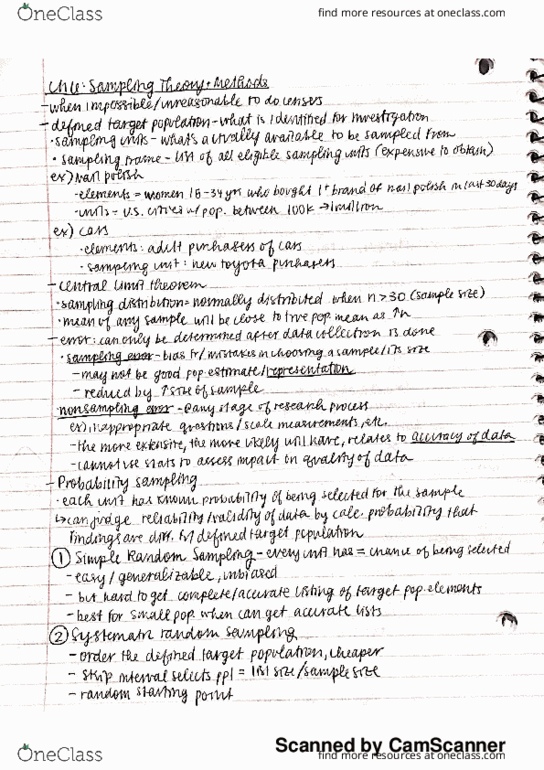 OneClass
find more resources at oneclass.com
Ch6: Sampling Theory + Methods
- when impossible/unreasonable to do census
- defined target population - what is identified for investigation
· sampling units - what's actually available to be sampled from
· sampling frame - list of all eligible sampling units (expensive to obtain)
ex) nail polish
- elements = women 18-34 yrs who bought 1+ brand of nail polish in last 30 days
- units = U.S. cities w/ pop. between 100K → 1 million
ex) cars
· elements: adult purchasers of cars
· sampling unit: new toyota purchasers
- central limit theorem
· sampling distribution = normally distributed when n > 30 (sample size)
· mean of any sample will be close to true pop mean as ↑n
- error: can only be determined after data collection is done
· sampling error - bias fr/ mistakes in choosing a sample/its size
- may not be good pop. estimate/representation
- reduced by ↑ size of sample
nonsampling error - @ any stage of research process
ex) inappropriate questions/scale measurements, etc.
- the more extensive, the more likely will have, relates to accuracy of data
- cannot use stats to assess impact on quality of data
- Probability sampling
· each unit has known probability of being selected for the sample
↳ can judge reliability/validity of data by calc. probability that
findings are diff. fr/ defined target population
① Simple Random Sampling - every unit has = chance of being selected
- easy/generalizable, unbiased
- but hard to get complete/accurate listing of target pop. elements
- best for small pop. when can get accurate lists
② Systematic random sampling
- order the defined target population, cheaper
- skip interval selects ppl = list size/sample size
- random starting point
Scanned by CamScanner
OneClass
find more resources at oneclass.com